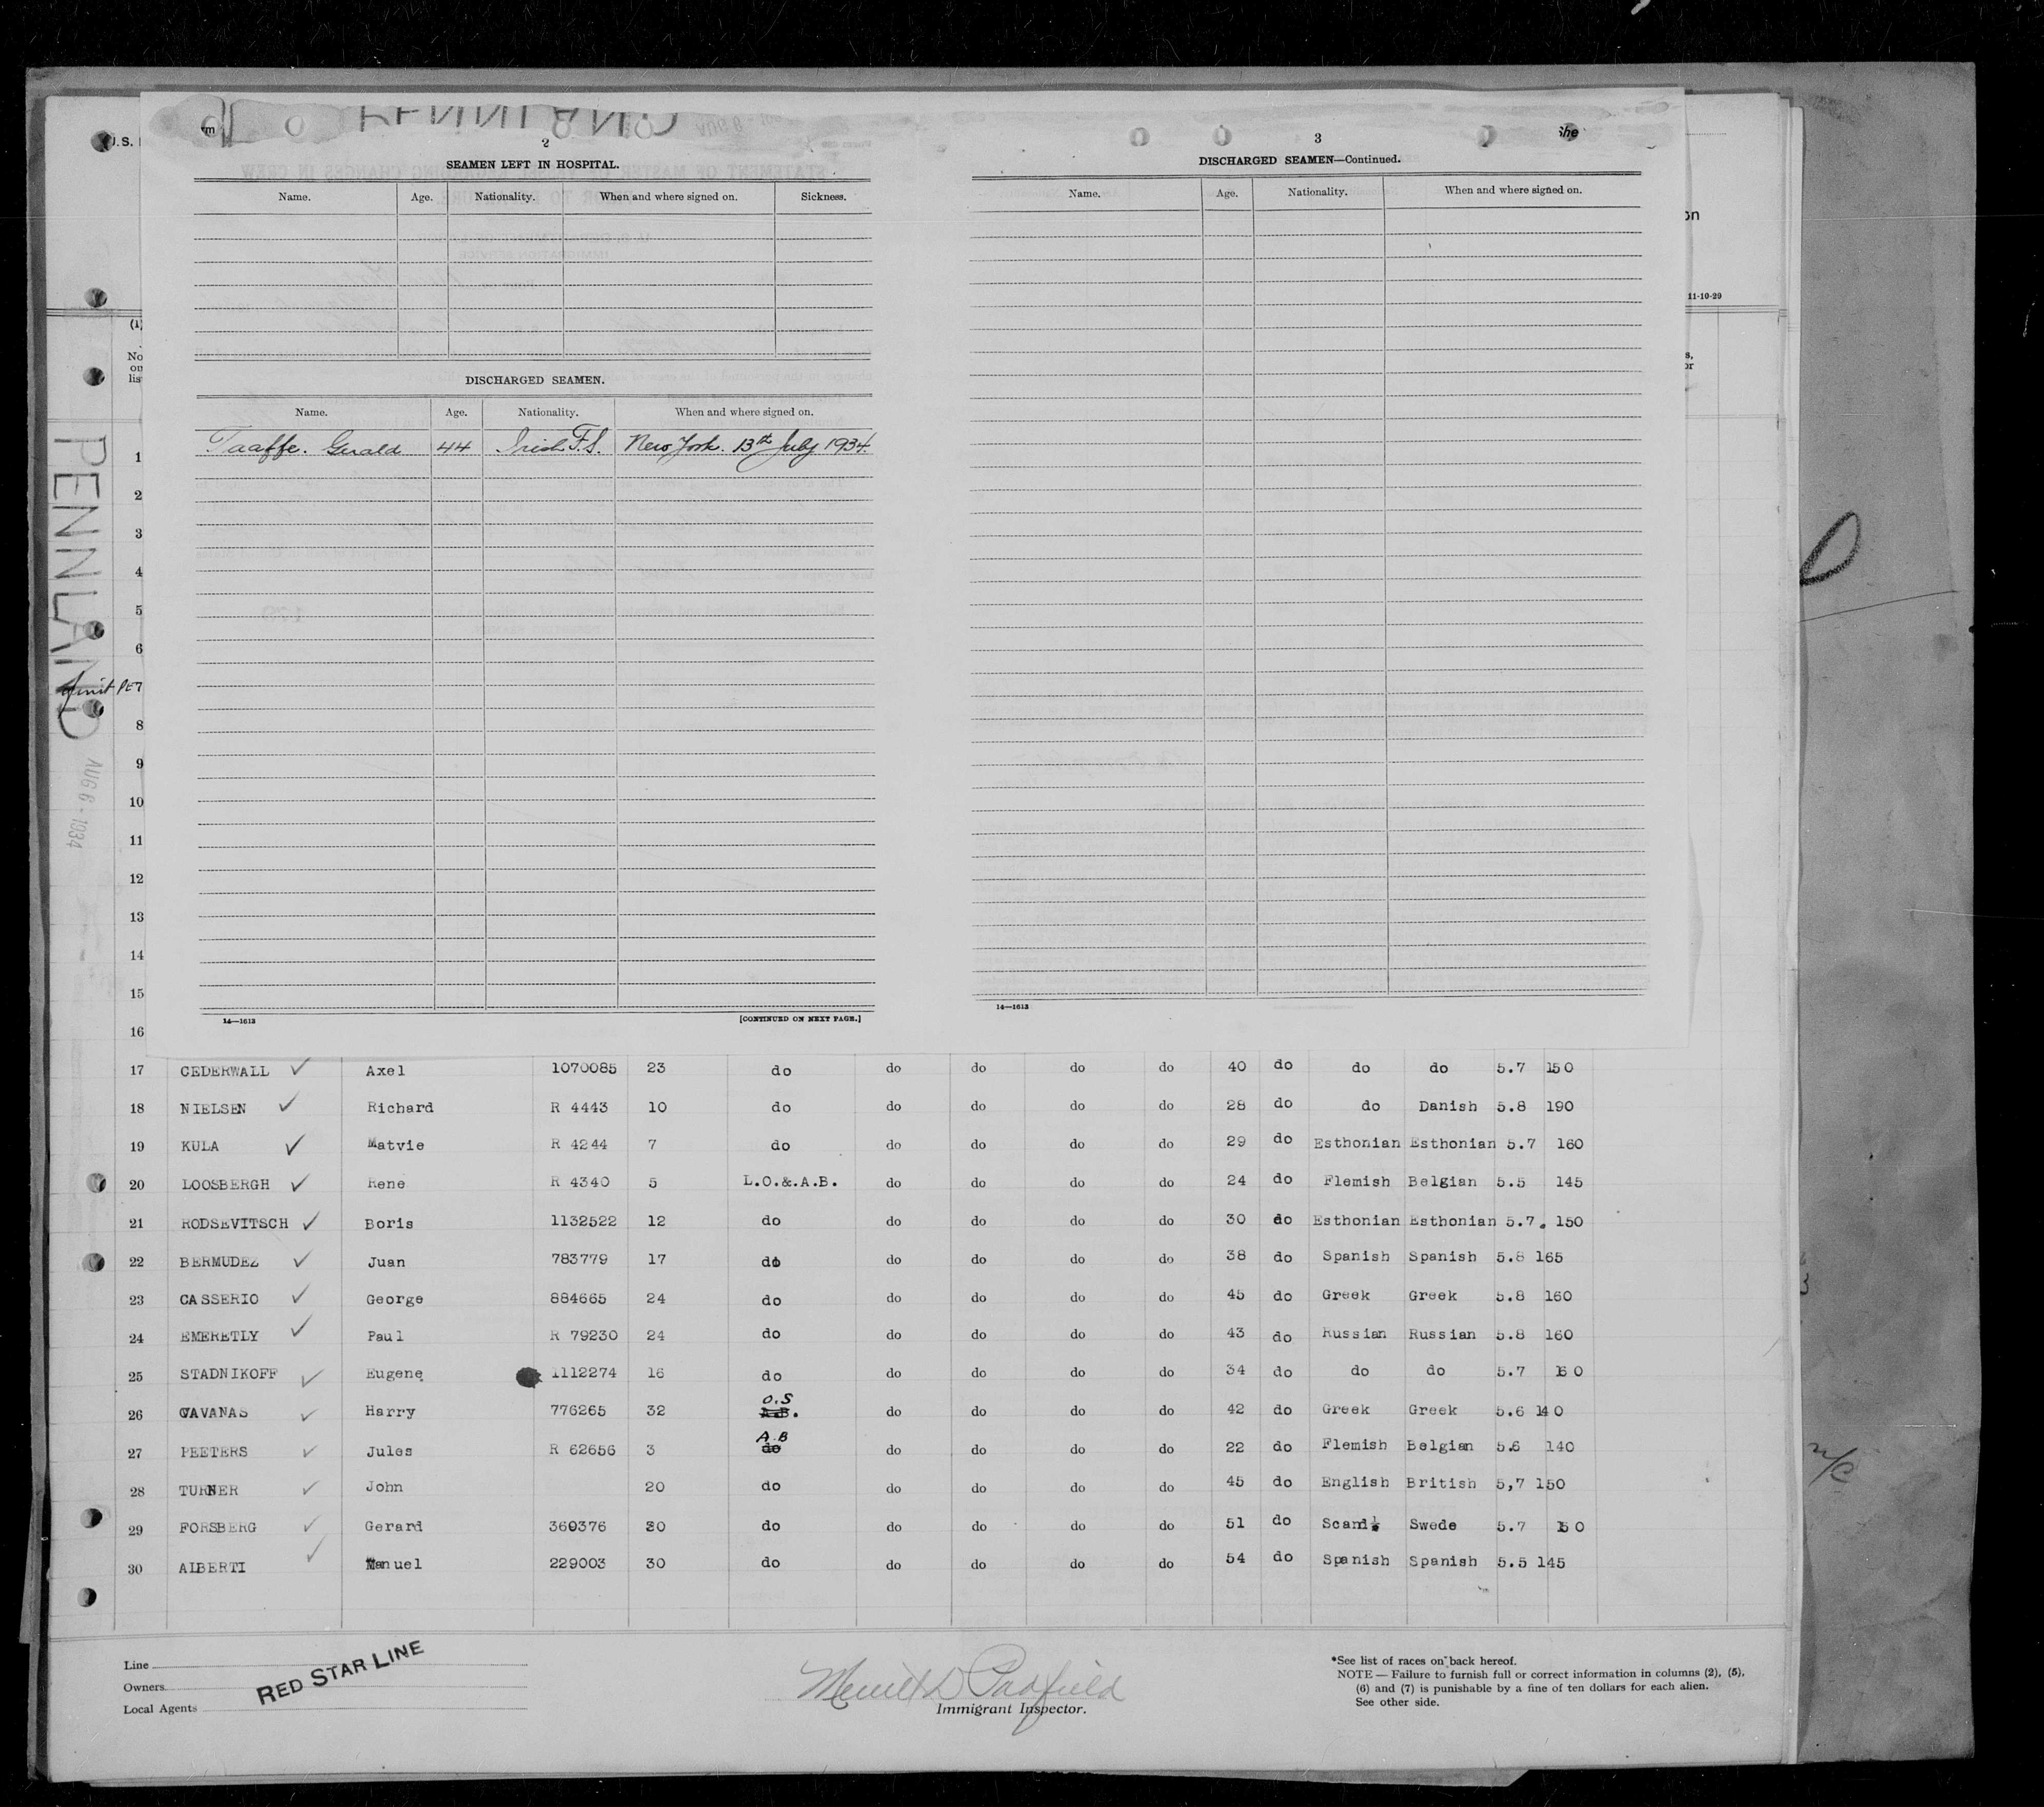 2
SEAMEN LEFT IN HOSPITAL.
Name. Age. Nationality. When and where signed on. Sickness.
DISCHARGED SEAMEN.
Name. Age. Nationality. When and where signed on.
Taaffe. Gerald 44 Irish F.S. New York. 13th July 1934.
14—1613 [CONTINUED ON NEXT PAGE.]
3
DISCHARGED SEAMEN—Continued.
Name. Age. Nationality. When and where signed on.
14—1613
U.S.
on
11-10-29
(1)
No
on
lis
PENNLAND
AUG 6 - 1934
1
2
3
4
5
6
8
9
10
11
12
13
14
15
16
17 CEDERWALL ✓ Axel 1070085 23 do do do do do 40 do do do 5.7 150
18 NIELSEN ✓ Richard R 4443 10 do do do do do 28 do do Danish 5.8 190
19 KULA ✓ Matvie R 4244 7 do do do do do 29 do Esthonian Esthonian 5.7 160
20 LOOSBERGH ✓ Rene R 4340 5 L.O.&.A.B. do do do do 24 do Flemish Belgian 5.5 145
21 RODSEVITSCH ✓ Boris 1132522 12 do do do do do 30 do Esthonian Esthonian 5.7. 150
22 BERMUDEZ ✓ Juan 783779 17 do do do do do 38 do Spanish Spanish 5.8 165
23 CASSERIO ✓ George 884665 24 do do do do do 45 do Greek Greek 5.8 160
24 EMERETLY ✓ Paul R 79230 24 do do do do do 43 do Russian Russian 5.8 160
25 STADNIKOFF ✓ Eugene 1112274 16 do do do do do 34 do do do 5.7 160
O.S
26 GAVANAS ✓ Harry 776265 32 A.B. do do do do 42 do Greek Greek 5.6 140
A.B
27 PEETERS ✓ Jules R 62656 3 do do do do do 22 do Flemish Belgian 5.6 140
28 TURNER ✓ John 20 do do do do do 45 do English British 5,7 150
29 FORSBERG ✓ Gerard 360376 30 do do do do do 51 do Scand. Swede 5.7 150
30 ALBERTI ✓ Manuel 229003 30 do do do do do 54 do Spanish Spanish 5.5 145
Line
Owners
Local Agents
RED STAR LINE
Merrill D Padfield
Immigrant Inspector.
*See list of races on back hereof.
NOTE — Failure to furnish full or correct information in columns (2), (5),
(6) and (7) is punishable by a fine of ten dollars for each alien.
See other side.